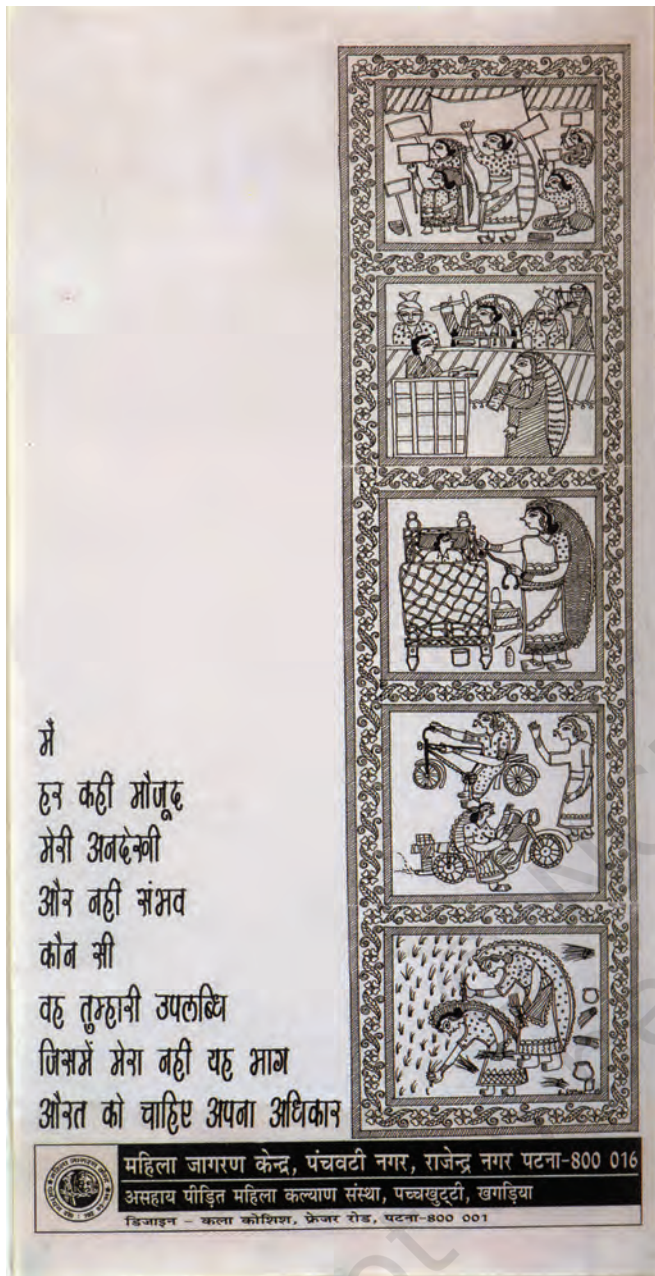 मैं
हर कहीं मौजूद
मेरी अनदेखी
और नहीं संभव
कौन सी
वह तुम्हारी उपलब्धि
जिसमें मेरा नहीं यह भाग
औरत को चाहिए अपना अधिकार
महिला जागरण केन्द्र, पंचवटी नगर, राजेन्द्र नगर पटना-800 016
असहाय पीड़ित महिला कल्याण संस्था, पच्चखुट्टी, खगड़िया
डिजाइन - कला कोशिश, फ्रेजर रोड, पटना-800 001